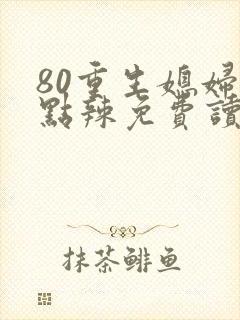 80重生媳婦
點辣免費讀
抹茶鲱鱼